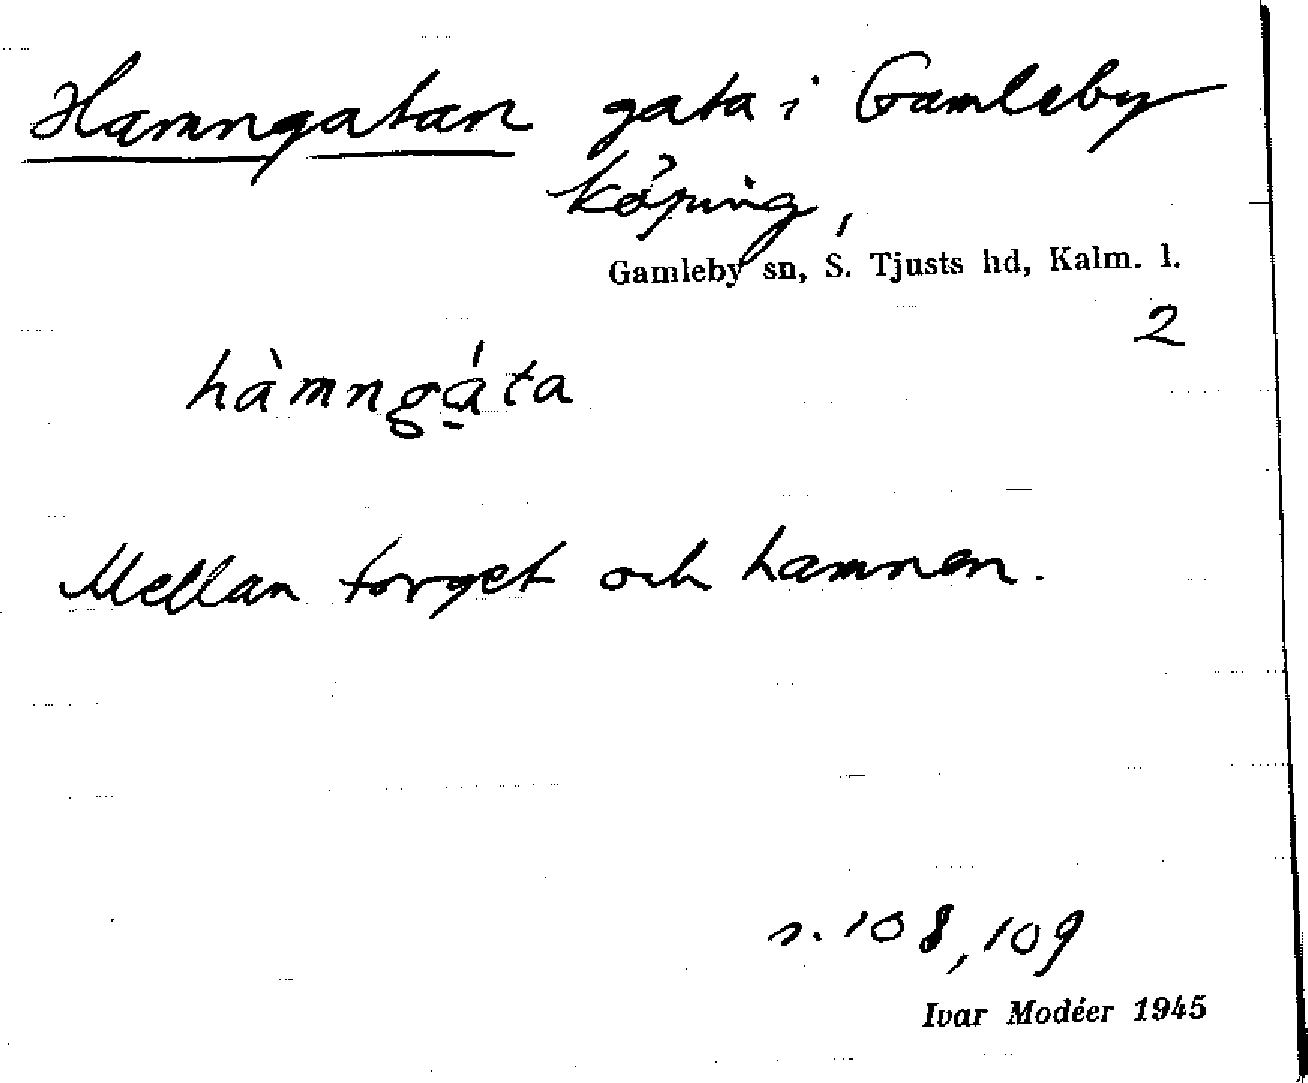 Hamngatan gata i Gamleby
köping,
Gamleby sn, S. Tjusts hd, Kalm. l.
2
hàmngá̱ta
Mellan torget och hamnen.
s. 108, 109
Ivar Modéer 1945